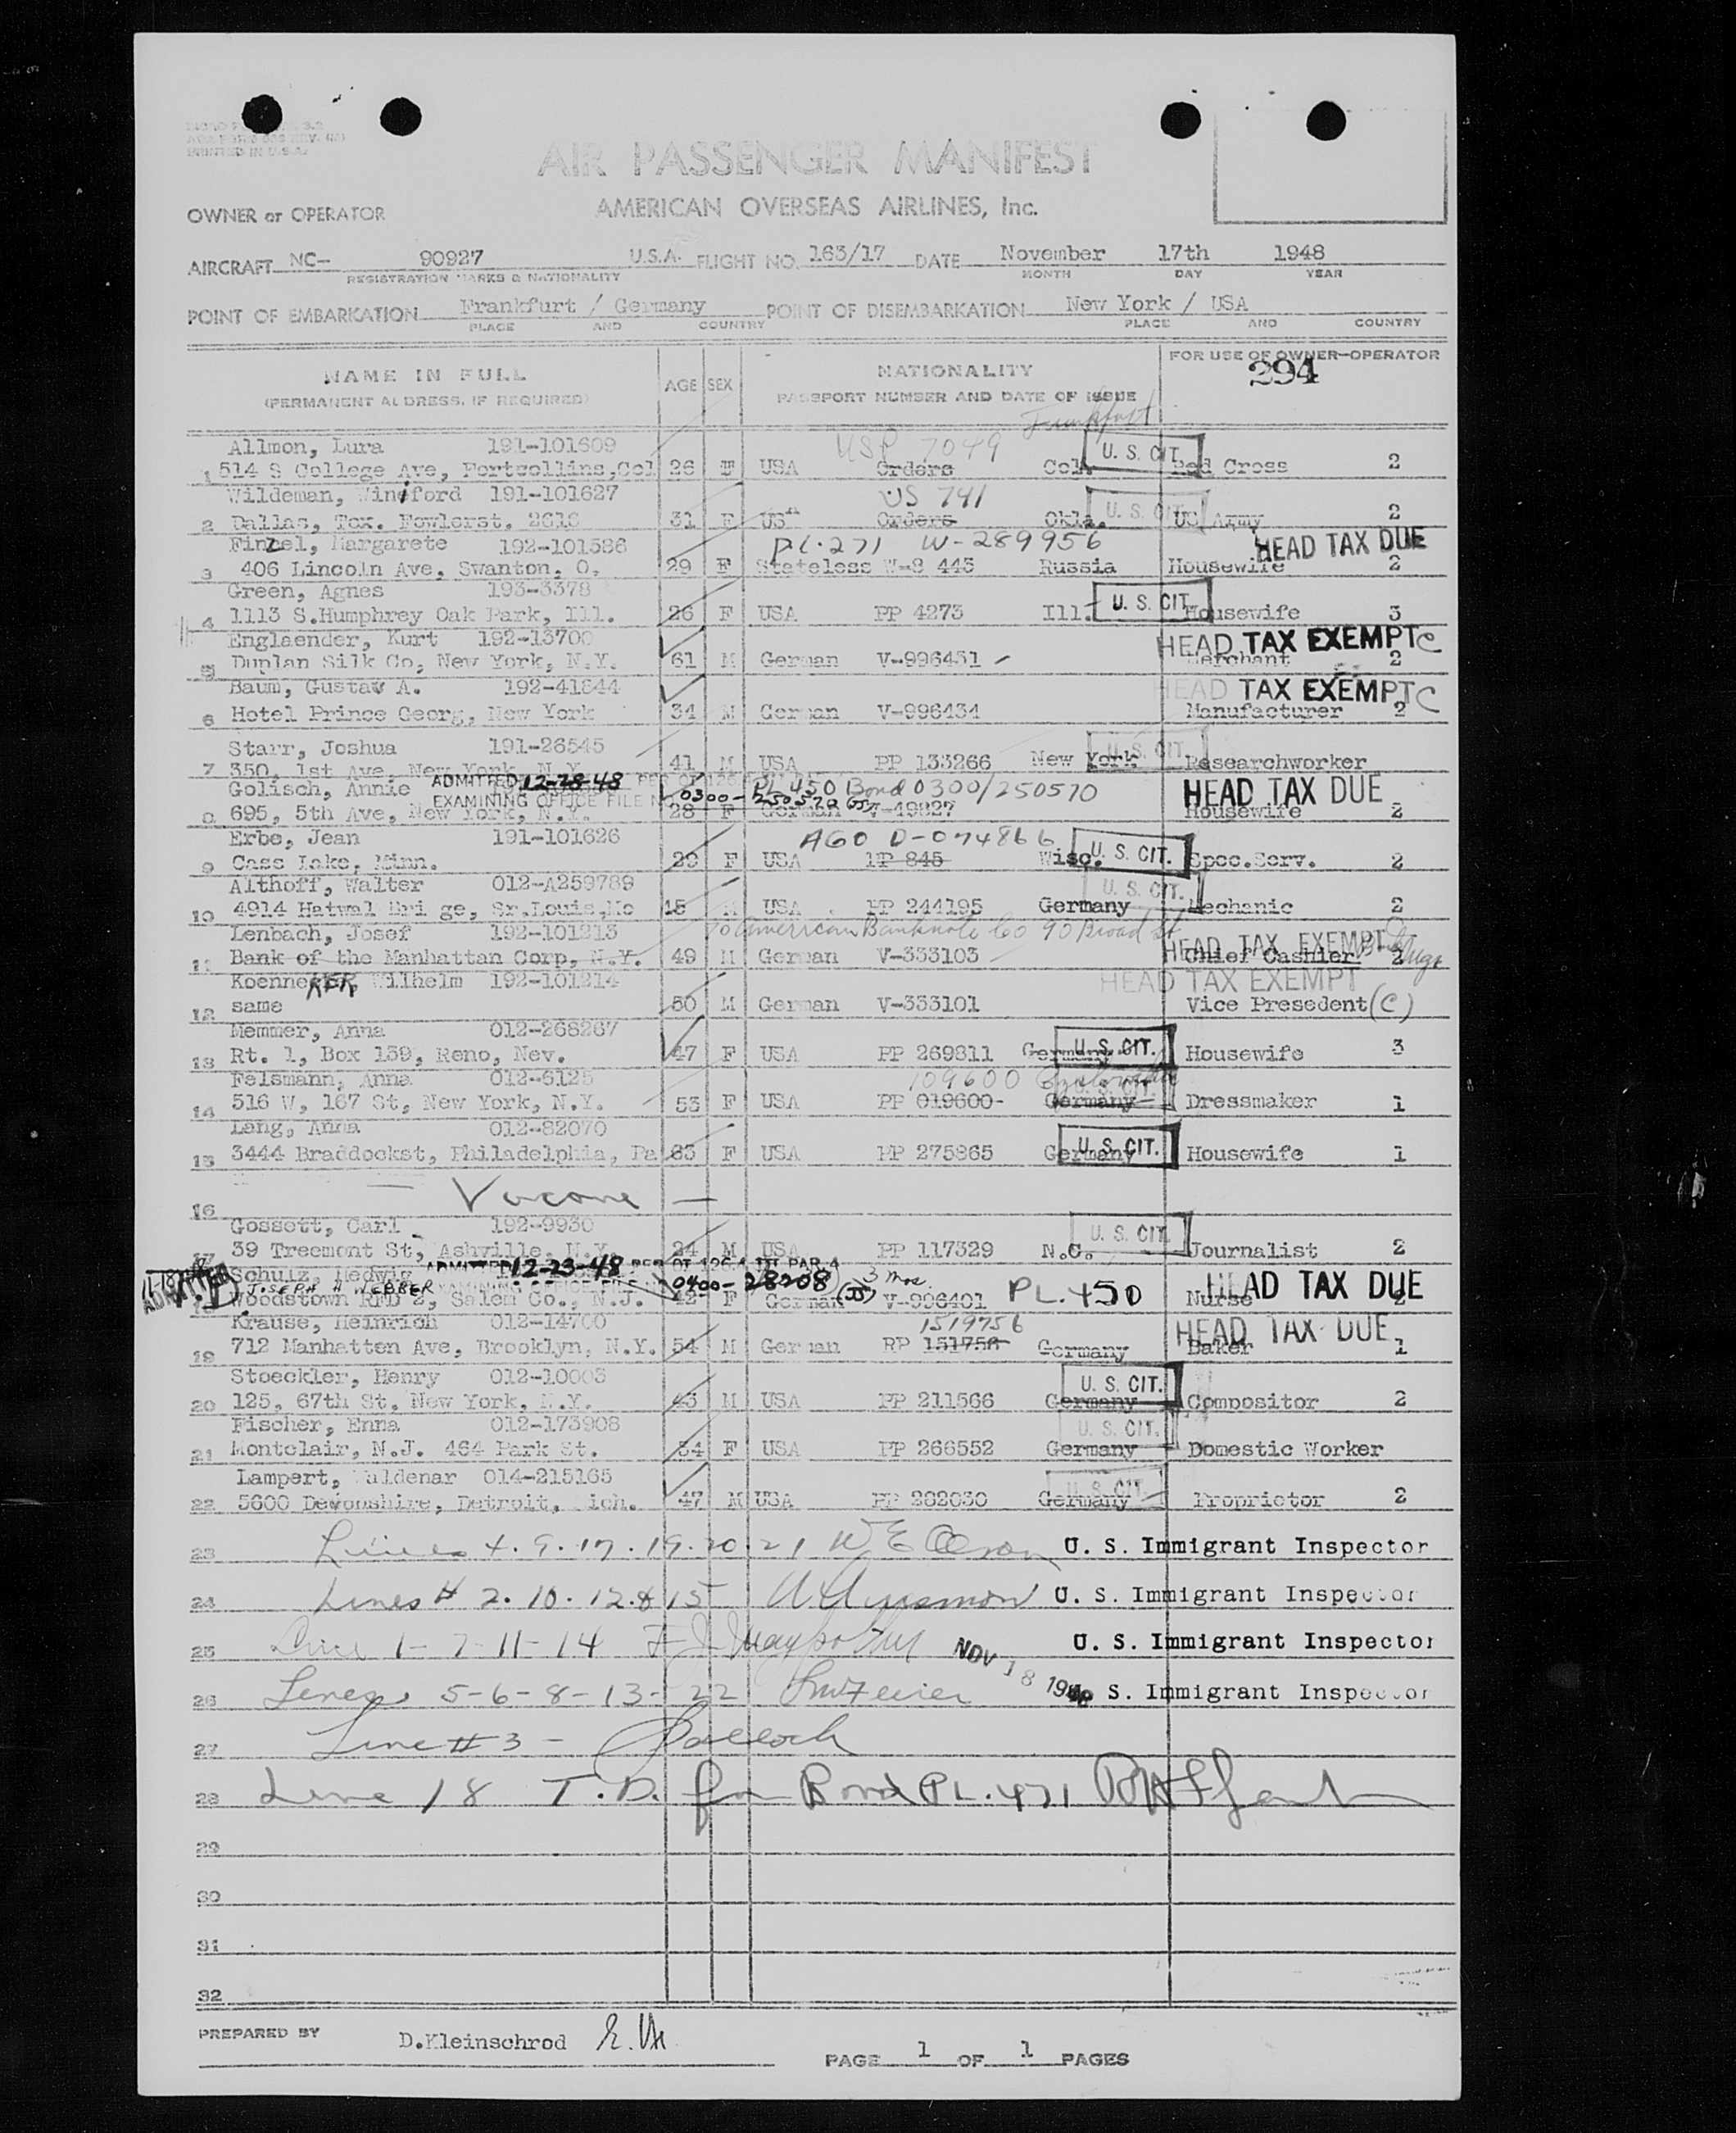 PRINTED IN U.S.A.
AIR PASSENGER MANIFEST
AMERICAN OVERSEAS AIRLINES, Inc.
OWNER or OPERATOR
AIRCRAFT NC- 90927 U.S.A. FLIGHT NO. 163/17 DATE November 17th 1948
REGISTRATION MARKS & NATIONALITY MONTH DAY YEAR
POINT OF EMBARKATION Frankfurt / Germany POINT OF DISEMBARKATION New York / USA
PLACE AND COUNTRY PLACE AND COUNTRY
FOR USE OF OWNER-OPERATOR
294
NAME IN FULL AGE SEX NATIONALITY
(PERMANENT ADDRESS, IF REQUIRED) PASSPORT NUMBER AND DATE OF ISSUE
Frankfurt
Allmon, Lura 191-101609 USP 7049 U. S. CIT.
1 514 S College Ave, Fortcollins,Col 26 F USA Orders Col. Red Cross 2
Wildeman, Winiford 191-101627 US 741
2 Dallas, Tex. Fowlerst, 2616 31 F US Orders Okla. U. S. CIT. US Army 2
Finzel, Margarete 192-101586 PL.271 W-289956 HEAD TAX DUE
3 406 Lincoln Ave, Swanton, O. 29 F Stateless W-8 443 Russia Housewife 2
Green, Agnes 193-3378
4 1113 S.Humphrey Oak Park, Ill. 26 F USA PP 4273 Ill. U. S. CIT. Housewife 3
Englaender, Kurt 192-13700 HEAD TAX EXEMPT C
5 Duplan Silk Co, New York, N.Y. 61 M German V-996431 Merchant 2
Baum, Gustav A. 192-41844 HEAD TAX EXEMPT C
6 Hotel Prince Georg, New York 34 M German V-996434 Manufacturer 2
Starr, Joshua 191-26545 U. S. CIT.
7 350, 1st Ave, New York, N.Y. 41 M USA PP 133266 New York Researchworker
Golisch, Annie ADMITTED 12-28-48 PL 450 Bond 0300/250570 HEAD TAX DUE
EXAMINING OFFICE FILE NO. 0300-250570
695, 5th Ave, New York, N.Y. 28 F German V-49827 Housewife 2
Erbe, Jean 191-101626 AGO D-074866
9 Cass Lake, Minn. 29 F USA PP 845 Wisc. U. S. CIT. Spec.Serv. 2
Althoff, Walter 012-A259789 U. S. CIT.
10 4914 Hatwal Bri ge, Sr.Louis,Mo 18 M USA PP 244195 Germany Mechanic 2
Lenbach, Josef 192-101213 To American Banknote Co 90 Broad St HEAD TAX EXEMPT
11 Bank of the Manhattan Corp, N.Y. 49 M German V-333103 Chief Cashier 2
Koenneker, Wilhelm 192-101214 HEAD TAX EXEMPT
12 same 50 M German V-333101 Vice Presedent (C)
Memmer, Anna 012-268267
13 Rt. 1, Box 159, Reno, Nev. 47 F USA PP 269811 Germany U. S. CIT. Housewife 3
Felsmann, Anna 012-6125 109600
14 516 W, 167 St, New York, N.Y. 53 F USA PP 019600- Germany U. S. CIT. Dressmaker 1
Lang, Anna 012-82070
15 3444 Braddockst, Philadelphia, Pa 63 F USA PP 275865 Germany U. S. CIT. Housewife 1
16 — Vacant —
Gossett, Carl 192-9930 U. S. CIT.
17 39 Treemont St, Ashville, N.Y. 24 M USA PP 117329 N.C. Journalist 2
Schulz, Hedwig ADMITTED 12-23-48 PER OI 126.1 III PAR 4
ADMITTED JOSEPH H WEBBER EXAMINING OFFICE FILE 0400-28208 (JJ) 3 mos. PL.450 HEAD TAX DUE
Woodstown RFD 2, Salem Co., N.J. 42 F German V-996401 Nurse 2
Krause, Heinrich 012-14700 1519756 HEAD TAX DUE
19 712 Manhatten Ave, Brooklyn, N.Y. 54 M German RP 151756 Germany Baker 1
Stoeckler, Henry 012-10003 U. S. CIT.
20 125, 67th St, New York, N.Y. 43 M USA PP 211566 Germany Compositor 2
Fischer, Enna 012-173908 U. S. CIT.
21 Montclair, N.J. 464 Park St. 54 F USA PP 266552 Germany Domestic Worker
Lampert, Waldenar 014-215165 U. S. CIT.
22 5600 Devonshire, Detroit, Mich. 47 M USA PP 282030 Germany Proprietor 2
23 Lines 4. 9. 17. 19. 20. 21 U. S. Immigrant Inspector
24 Lines # 2. 10. 12. & 15 U. S. Immigrant Inspector
25 Line 1-7-11-14 U. S. Immigrant Inspector
NOV 18 1948
26 Lines 5-6-8-13-22 S. Immigrant Inspector
27 Line # 3 -
28 Line 18 T.D. for Bond PL.471
29
30
31
32
PREPARED BY D.Kleinschrod
PAGE 1 OF 1 PAGES